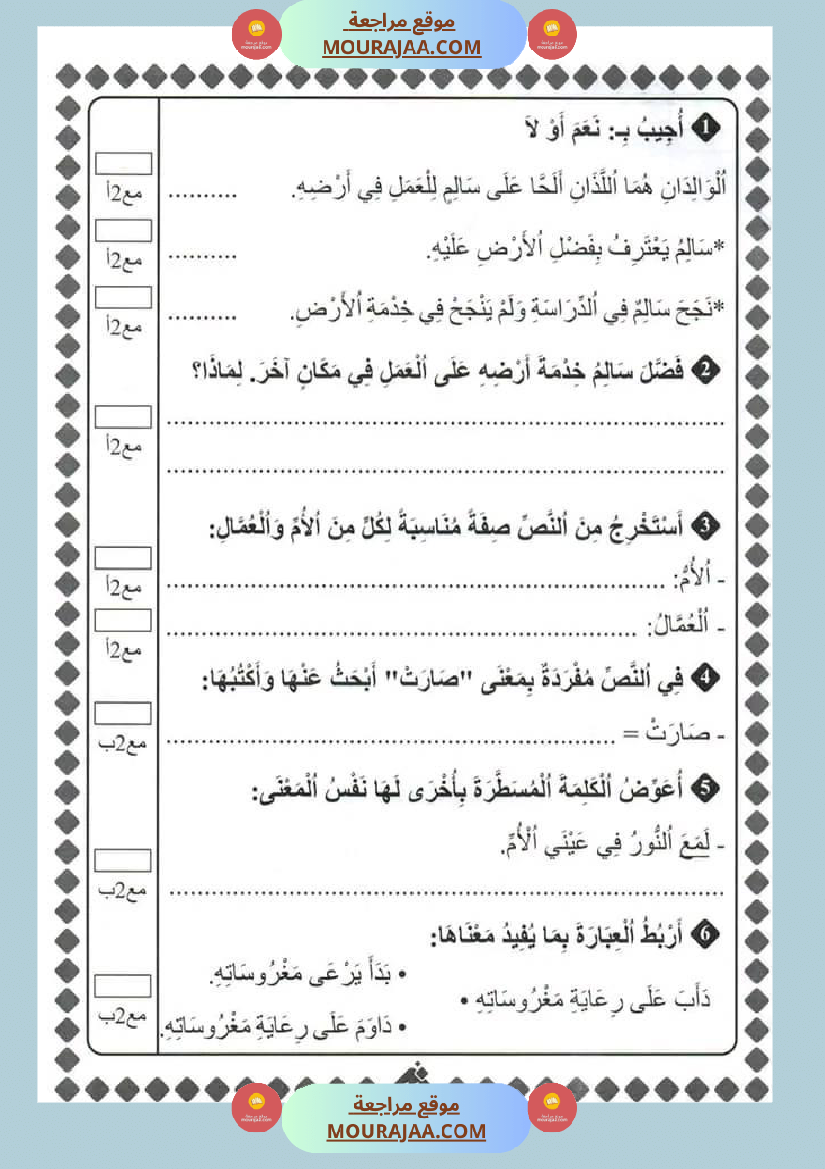 موقع مراجعة
MOURAJAA.COM
1 أُجِيبُ بِـ: نَعَمَ أَوْ لاَ
اُلْوَالِدَانِ هُمَا اُللَّذَانِ أَلَحَّا عَلَى سَالِمٍ لِلْعَمَلِ فِي أَرْضِهِ. ..........
مع2أ
*سَالِمُ يَعْتَرِفُ بِفَضْلِ اُلأَرْضِ عَلَيْهِ. ..........
مع2أ
*نَجَحَ سَالِمٌ فِي اُلدِّرَاسَةِ وَلَمْ يَنْجَحْ فِي خِدْمَةِ اُلأَرْضِ. ..........
مع2أ
2 فَضَّلَ سَالِمُ خِدْمَةَ أَرْضِهِ عَلَى اُلْعَمَلِ فِي مَكَانٍ آخَرَ. لِمَاذَا؟
................................................................
مع2أ
................................................................
3 أَسْتَخْرِجُ مِنَ اُلنَّصِّ صِفَةً مُنَاسِبَةً لِكُلٍّ مِنَ اُلأُمِّ وَاُلْعُمَّالِ:
- اُلأُمُّ: ................................................................
مع2أ
- اُلْعُمَّالُ: ................................................................
مع2أ
4 فِي اُلنَّصِّ مُفْرَدَةٌ بِمَعْنَى "صَارَتْ" أَبْحَثُ عَنْهَا وَأَكْتُبُهَا:
- صَارَتْ = ................................................................
مع2ب
5 أُعَوِّضُ اُلْكَلِمَةَ اُلْمُسَطَّرَةَ بِأُخْرَى لَهَا نَفْسُ اُلْمَعْنَى:
- لَمَعَ اُلنُّورُ فِي عَيْنَي اُلْأُمِّ.
................................................................
مع2ب
6 أَرْبُطُ اُلْعِبَارَةَ بِمَا يُفِيدُ مَعْنَاهَا:
• بَدَأَ يَرْعَى مَغْرُوسَاتِهِ.
دَأَبَ عَلَى رِعَايَةِ مَغْرُوسَاتِهِ •
• دَاوَمَ عَلَى رِعَايَةِ مَغْرُوسَاتِهِ.
مع2ب
موقع مراجعة
MOURAJAA.COM